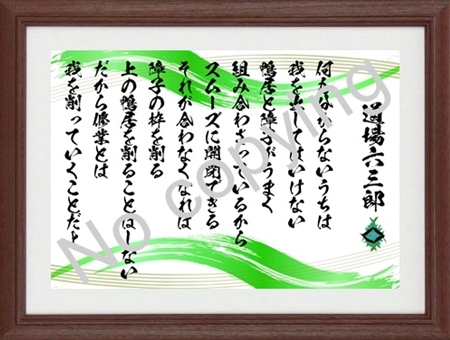 道場六三郎
何もわからないうちは
我を出してはいけない
鴨居と障子がうまく
組み合わさっているから
スムーズに開閉できる
それが合わなくなれば
障子の枠を削る
上の鴨居を削ることはしない
だから修業とは
我を削っていくことだ
No copying